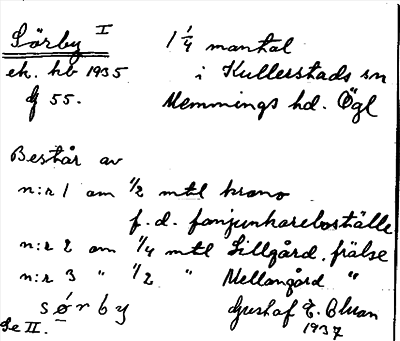 Sörby I 1 1/4 mantal
ek. kb 1935 i Kullerstads sn
55. Memmings hd. Ögl
Består av
n:r 1 om 1/2 mtl krono
f.d. fanjunkareboställe
n:r 2 om 1/4 mtl Lillgård, frälse
n:r 3 " 1/2 " Mellangård "
sǿrby Gustaf E. Bluan
Se II. 1937